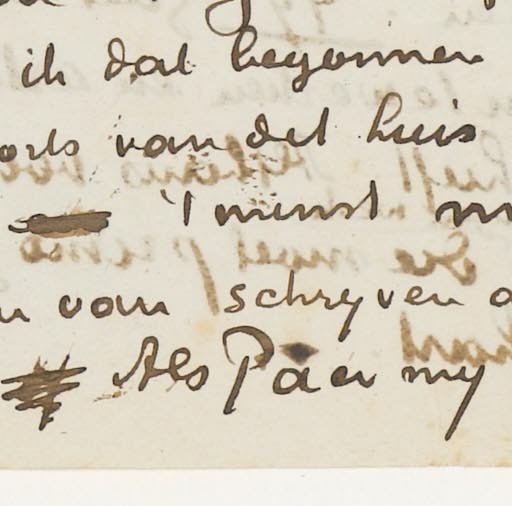 ik dat begonnen
orts van det huis
't minst
van schryven
Als Pa er my